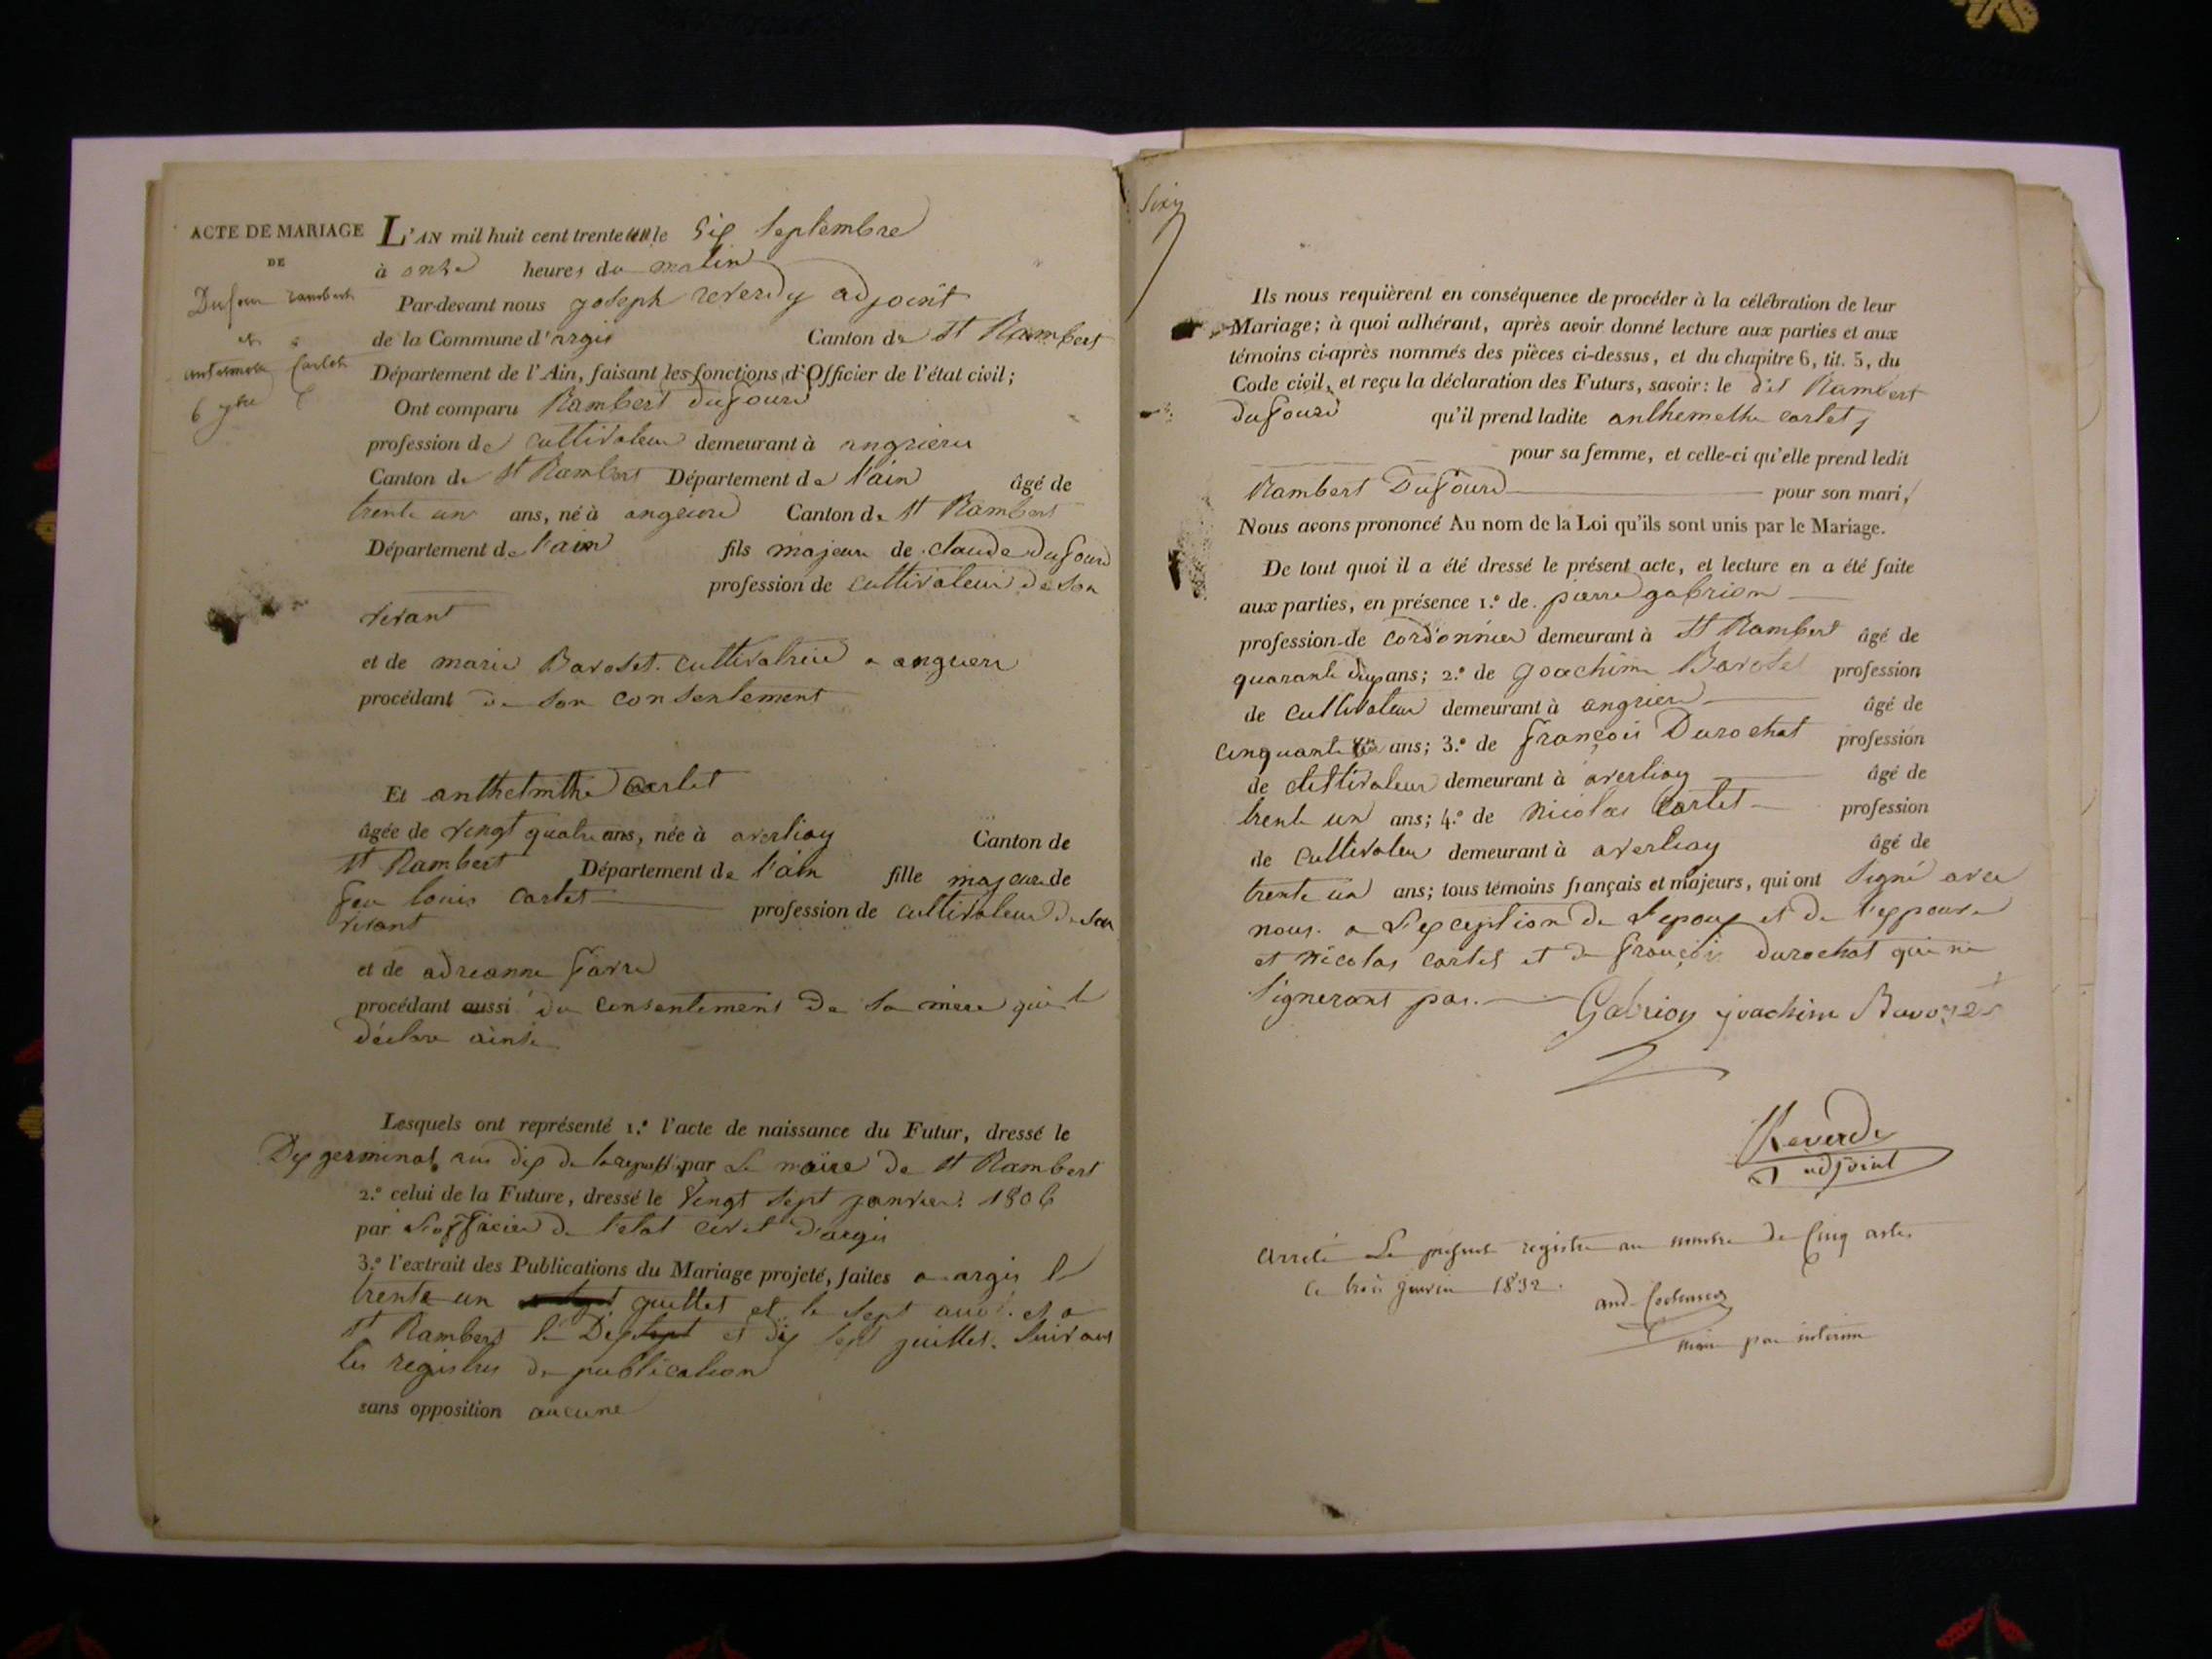 ACTE DE MARIAGE
DE
Dufour rambert
et
anthermette Carlet
6 7bre
L'AN mil huit cent trente un le Six Septembre
à onze heures du matin
Par-devant nous joseph reverdy adjoint
de la Commune d'argis Canton de st Rambert
Département de l'Ain, faisant les fonctions d'Officier de l'état civil;
Ont comparu Rambert dufourd
profession de cultivateur demeurant à angrieru
Canton de st Rambert Département de l'ain âgé de
trente un ans, né à Canton de st Rambert
Département de l'ain fils majeur de claude dufourd
profession de cultivateur de son
vivant
et de marie Barodet cultivatrice a
procédant de son consentement
Et anthelmithe Cartet
âgée de vingt quatre ans, née à averliay Canton de
st Rambert Département de l'ain fille majeur de
feu louis Cartet profession de cultivateur de son
vivant
et de adreanne favre
procédant aussi du consentement de sa mere qui le
déclare ainsi
Lesquels ont représenté 1.º l'acte de naissance du Futur, dressé le
Dix germinal an dix de la par le maire de st Rambert
2.º celui de la Future, dressé le Vingt sept janvier 1806
par l'officier de l'etat civil d'argis
3.º l'extrait des Publications du Mariage projeté, faites a argis le
trente un juillet et le sept aout et a
st Rambert le Dix sept et dix sept juillet. suivant
les registres de publication
sans opposition aucune
Ils nous requièrent en conséquence de procéder à la célébration de leur
Mariage; à quoi adhérant, après avoir donné lecture aux parties et aux
témoins ci-après nommés des pièces ci-dessus, et du chapitre 6, tit. 5, du
Code civil, et reçu la déclaration des Futurs, savoir: le dit Rambert
dufourd qu'il prend ladite anthemethe cartet,
pour sa femme, et celle-ci qu'elle prend ledit
Rambert Dufourd pour son mari,
Nous avons prononcé Au nom de la Loi qu'ils sont unis par le Mariage.
De tout quoi il a été dressé le présent acte, et lecture en a été faite
aux parties, en présence 1.º de pierre gabrion
profession de cordonnier demeurant à st Rambert âgé de
quarante ans; 2.º de joachim Barodet profession
de cultivateur demeurant à angriere âgé de
cinquante ans; 3.º de françois Durochat profession
de cultivateur demeurant à averliay âgé de
trente un ans; 4.º de Nicolas Cartet profession
de cultivateur demeurant à averliay âgé de
trente un ans; tous témoins français et majeurs, qui ont signé avec
nous a l'exception de l'epoux et de l'epouse
et nicolas cartet et de françois durochat qui ne
signeront pas. Gabrion joachim
Reverdi
adjoint
Arrêté le présent registre au nombre de Cinq actes
le trois janvier 1832.
maire par interim